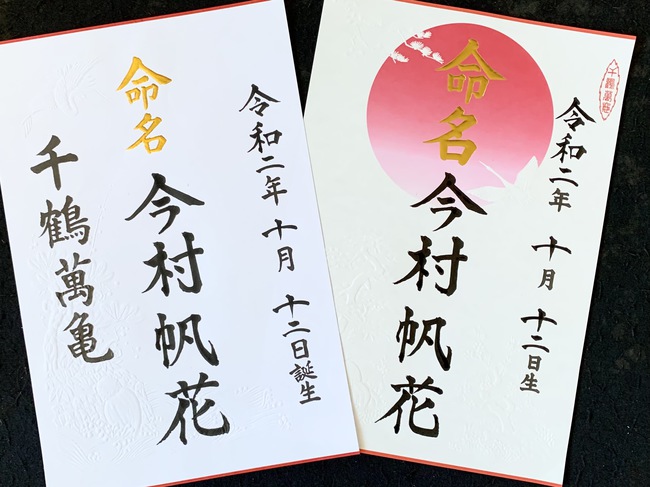 令和二年 十月 十二日誕生
命名
今村帆花
千鶴萬亀
千鶴萬亀
令和二年 十月 十二日生
命名
今村帆花